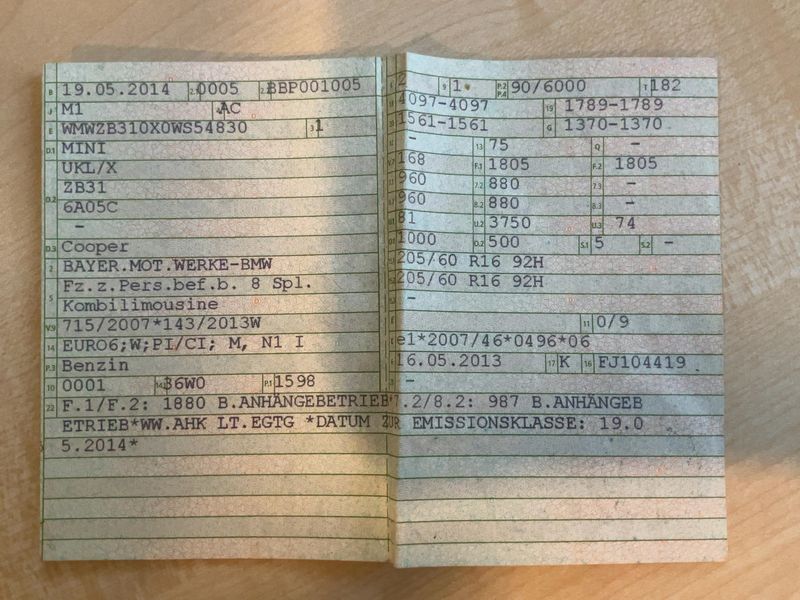 B 19.05.2014 2.1 0005 2.2 BBP001005
J M1 4 AC
E WMWZB310X0WS54830 3 1
D.1 MINI
UKL/X
D.2 ZB31
6A05C
-
D.3 Cooper
2 BAYER.MOT.WERKE-BMW
5 Fz.z.Pers.bef.b. 8 Spl.
Kombilimousine
V.9 715/2007*143/2013W
14 EURO6;W;PI/CI; M, N1 I
P.3 Benzin
10 0001 14.1 36W0 P.1 1598
22 F.1/F.2: 1880 B.ANHÄNGEBETRIEB*7.2/8.2: 987 B.ANHÄNGEB
ETRIEB*WW.AHK LT.EGTG *DATUM ZUR EMISSIONSKLASSE: 19.0
5.2014*
2 9 1 P.2 P.4 90/6000 T 182
4097-4097 19 1789-1789
1561-1561 G 1370-1370
- 13 75 Q -
168 F.1 1805 F.2 1805
960 7.2 880 7.3 -
960 8.2 880 8.3 -
81 U.2 3750 U.3 74
1000 O.2 500 S.1 5 S.2 -
205/60 R16 92H
205/60 R16 92H
-
11 0/9
e1*2007/46*0496*06
16.05.2013 17 K 16 FJ104419
-